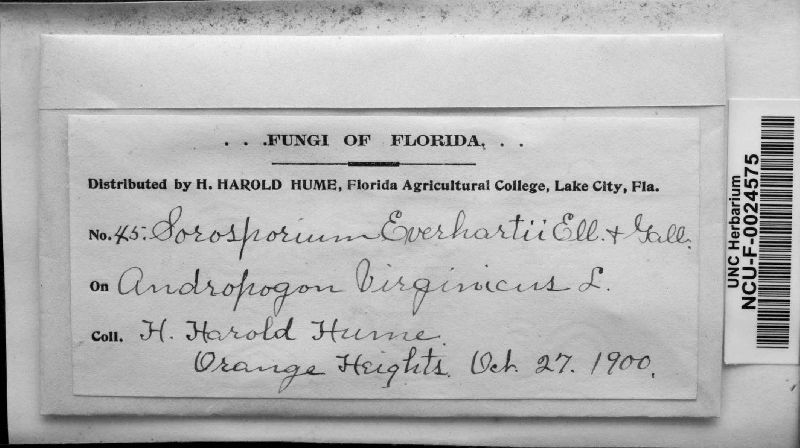 . . .FUNGI OF FLORIDA. . .
Distributed by H. HAROLD HUME, Florida Agricultural College, Lake City, Fla.
No. 45. Sorosporium Everhartii Ell. & Gall.
On Andropogon Virginicus L.
Coll. H. Harold Hume.
Orange Heights. Oct. 27. 1900.
UNC Herbarium
NCU-F-0024575